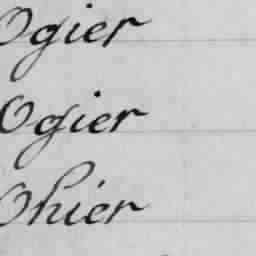 Ogier
Ogier
Ohier